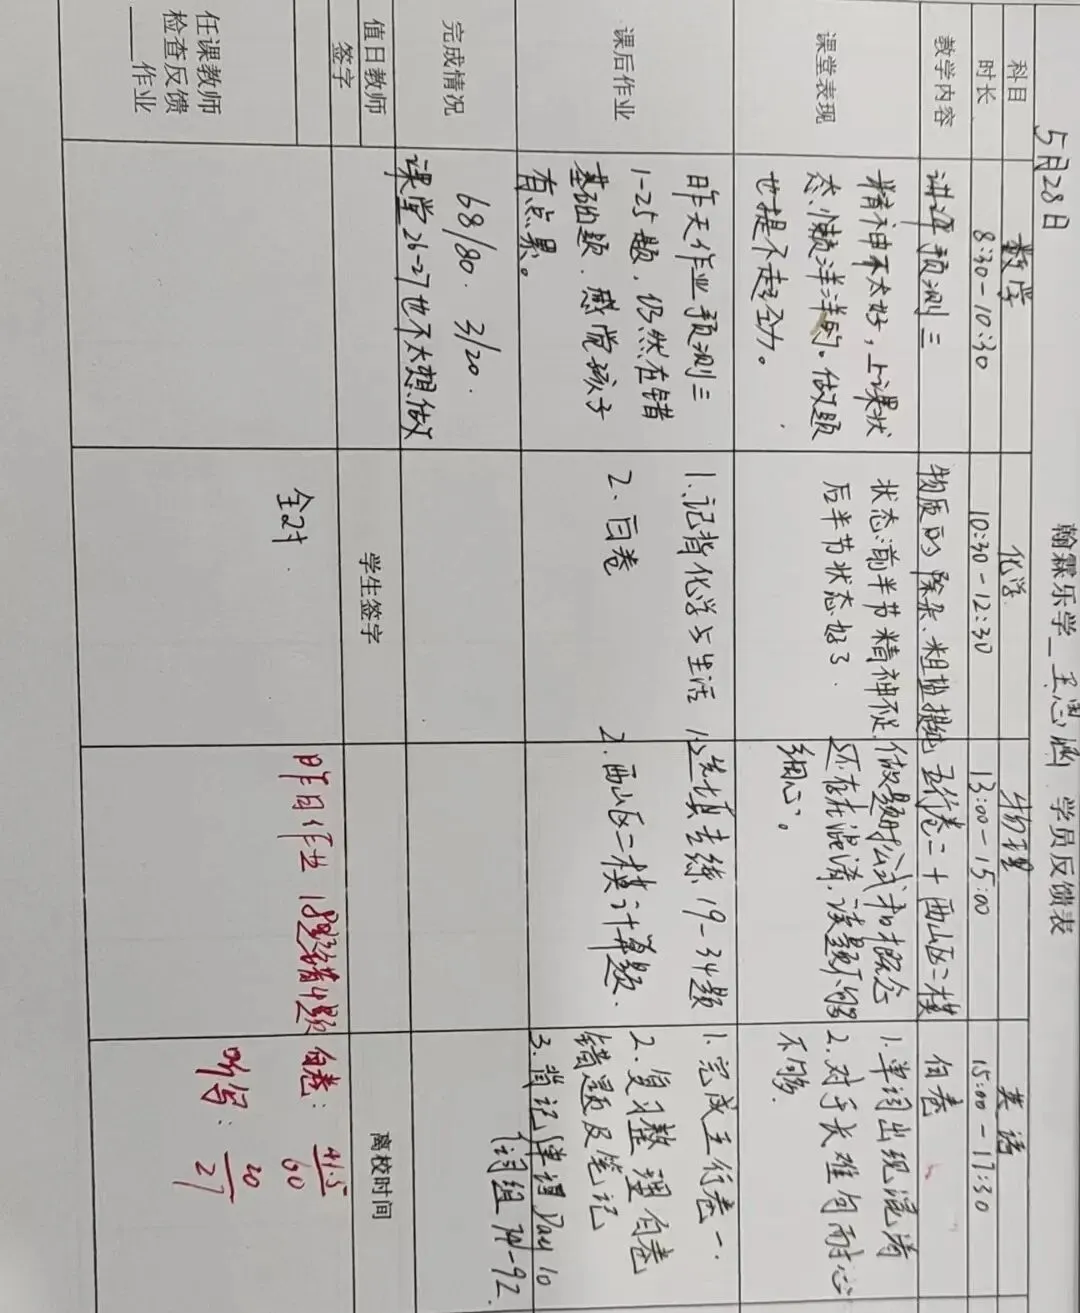 翰霖乐学_王思涵 学员反馈表
5月28日
科目 数学 化学 物理 英语
时长 8:30-10:30 10:30-12:30 13:00-15:00 15:00-17:30
教学内容
讲评预测三
物质的除杂、粗盐提纯
五行卷二+西山区二模
白卷
课堂表现
精神不太好,上课状
态懒洋洋的。做题
也提不起劲。
状态:前半节精神不足
后半节状态好了.
做题时公式和概念
还存在混淆,读题不够
细心。
1.单词出现混淆
2.对于长难句耐心
不够.
课后作业
昨天作业预测三
1-25题,仍然在错
基础题.感觉孩子
有点累。
1.记背化学与生活
2.白卷
1.选填专练19-34题
2.西山区二模计算题.
1.完成五行卷一.
2.复习整理白卷
错题及笔记
3.背记单词Day 10
词组 71-92.
完成情况
68/80. 3/20.
课堂26-27也不太想做
值日教师
签字
学生签字
离校时间
任课教师
检查反馈
___作业
全对.
昨日作业 18题错4题
白卷: 41.5/60
听写: 20/27